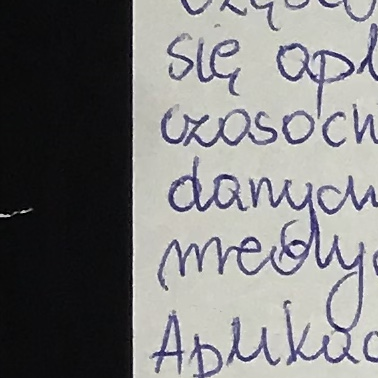 się apl
czasoch
danych
medy
Aplikac